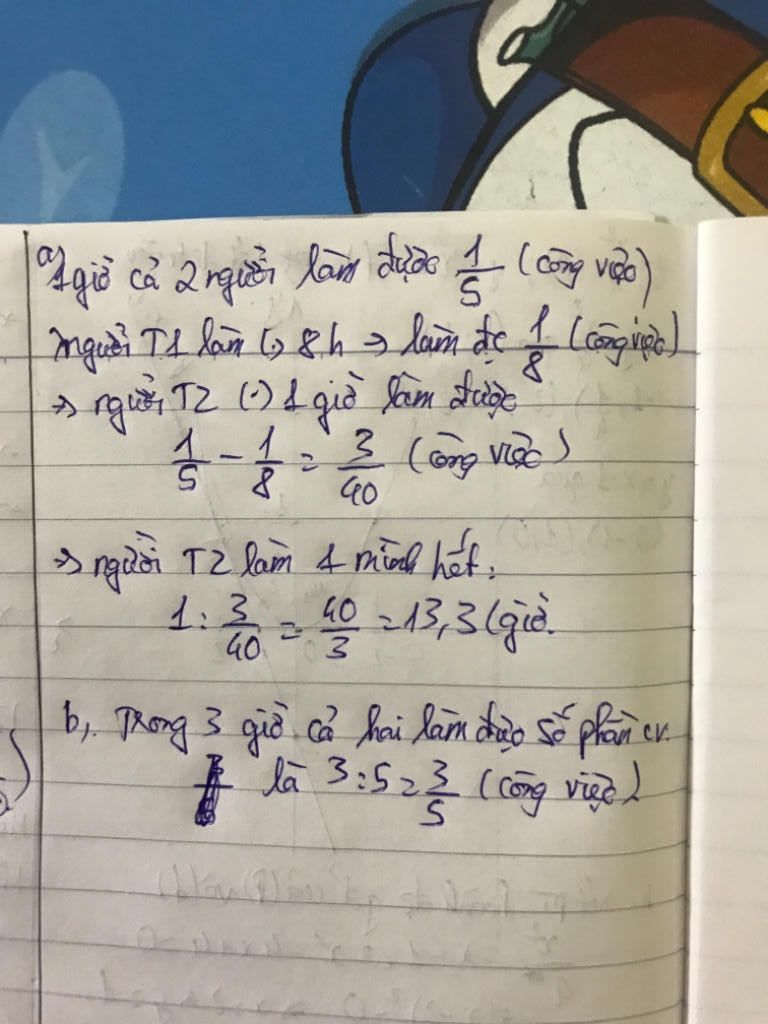 a, 1 giờ cả 2 người làm được 1/5 (công việc)
người T1 làm (.) 8h → làm đc 1/8 (công việc)
→ người T2 (.) 1 giờ làm được
1/5 - 1/8 = 3/40 (công việc)
→ người T2 làm 1 mình hết:
1 : 3/40 = 40/3 = 13,3 (giờ.
b, Trong 3 giờ cả hai làm được số phần cv.
là 3 : 5 = 3/5 (công việc)